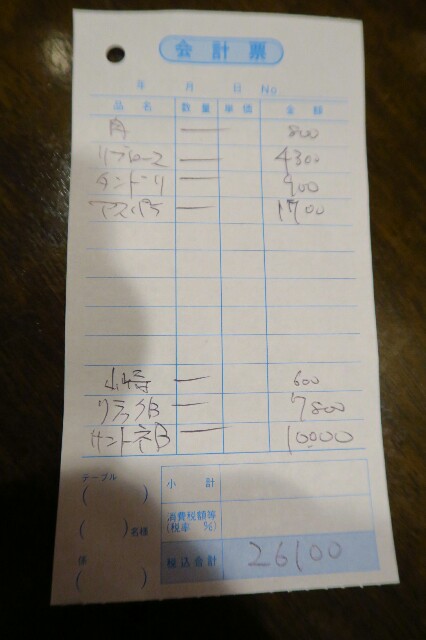 会計票
年 月 日 No.
品名 数量 単価 金額
一 800
リブロース 一 4300
タンドリ 一 900
アスパラ 一 1700
一 600
一 7800
サントネB 一 10000
テーブル
( )
( )名様
係
( )
小計
消費税額等
(税率 %)
税込合計 26100